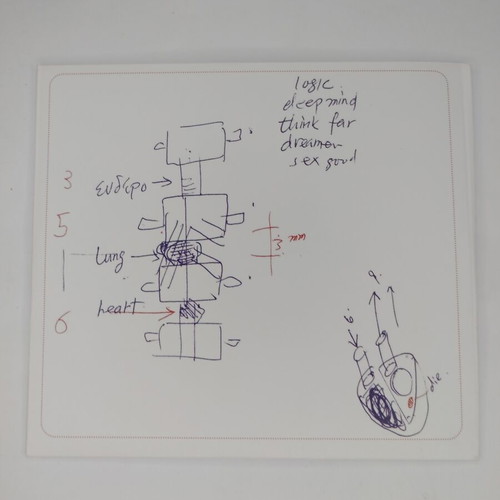 logic.
deep mind
think far
dreamer
sex good
3
ενδερο
5
lung
3 mm
heart
6
6.
9.
die.